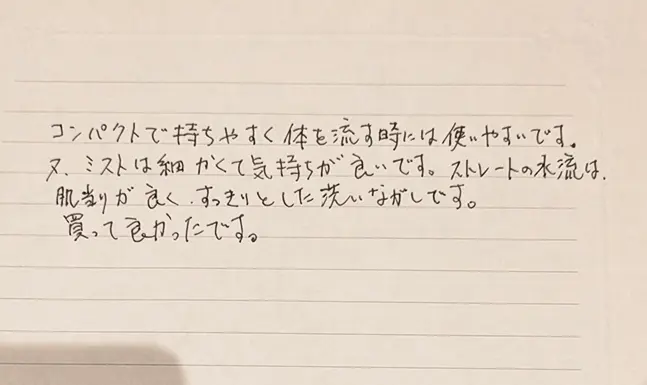 コンパクトで持ちやすく体を流す時には使いやすいです。
又、ミストは細かくて気持ちが良いです。ストレートの水流は、
肌当りが良く、すっきりとした洗いながしです。
買って良かったです。